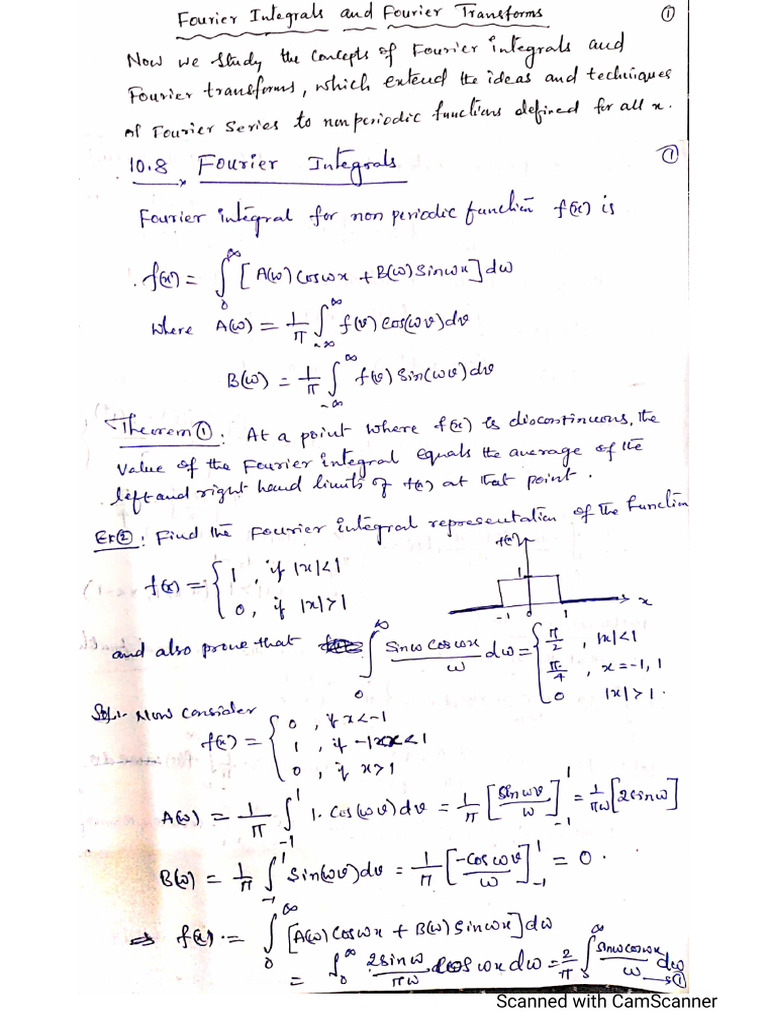 Fourier Integrals and Fourier Transforms ①
Now we study the concepts of Fourier integrals and
Fourier transforms, which extend the ideas and techniques
of Fourier Series to nonperiodic functions defined for all x.
10.8 Fourier Integrals ①
Fourier integral for non periodic function f(x) is
f(x) = ∫₀^∞ [A(ω) cosωx + B(ω) sinωx] dω
where A(ω) = 1/π ∫_{-∞}^∞ f(v) cos(ωv) dv
B(ω) = 1/π ∫_{-∞}^∞ f(v) sin(ωv) dv
Theorem ①: At a point where f(x) is discontinuous, the
value of the Fourier integral equals the average of the
left and right hand limits of f(x) at that point.
Ex②: Find the Fourier integral representation of the function
f(x) = { 1, if |x|<1
0, if |x|>1
f(x)
1
-1 0 1 x
and also prove that ∫₀^∞ (sinω cosωx)/ω dω = { π/2, |x|<1
π/4, x=-1, 1
0 |x|>1.
Sol:- Now consider
f(x) = { 0, if x<-1
1, if -1<x<1
0, if x>1
A(ω) = 1/π ∫_{-1}^1 1. cos(ωv) dv = 1/π [sinωv/ω]_{-1}^1 = 1/πω [2sinω]
B(ω) = 1/π ∫_{-1}^1 sin(ωv) dv = 1/π [-cosωv/ω]_{-1}^1 = 0.
⇒ f(x) = ∫₀^∞ [A(ω) cosωx + B(ω) sinωx] dω
= ∫₀^∞ 2sinω/πω cosωx dω = 2/π ∫₀^∞ (sinω cosωx)/ω dω →①
Scanned with CamScanner